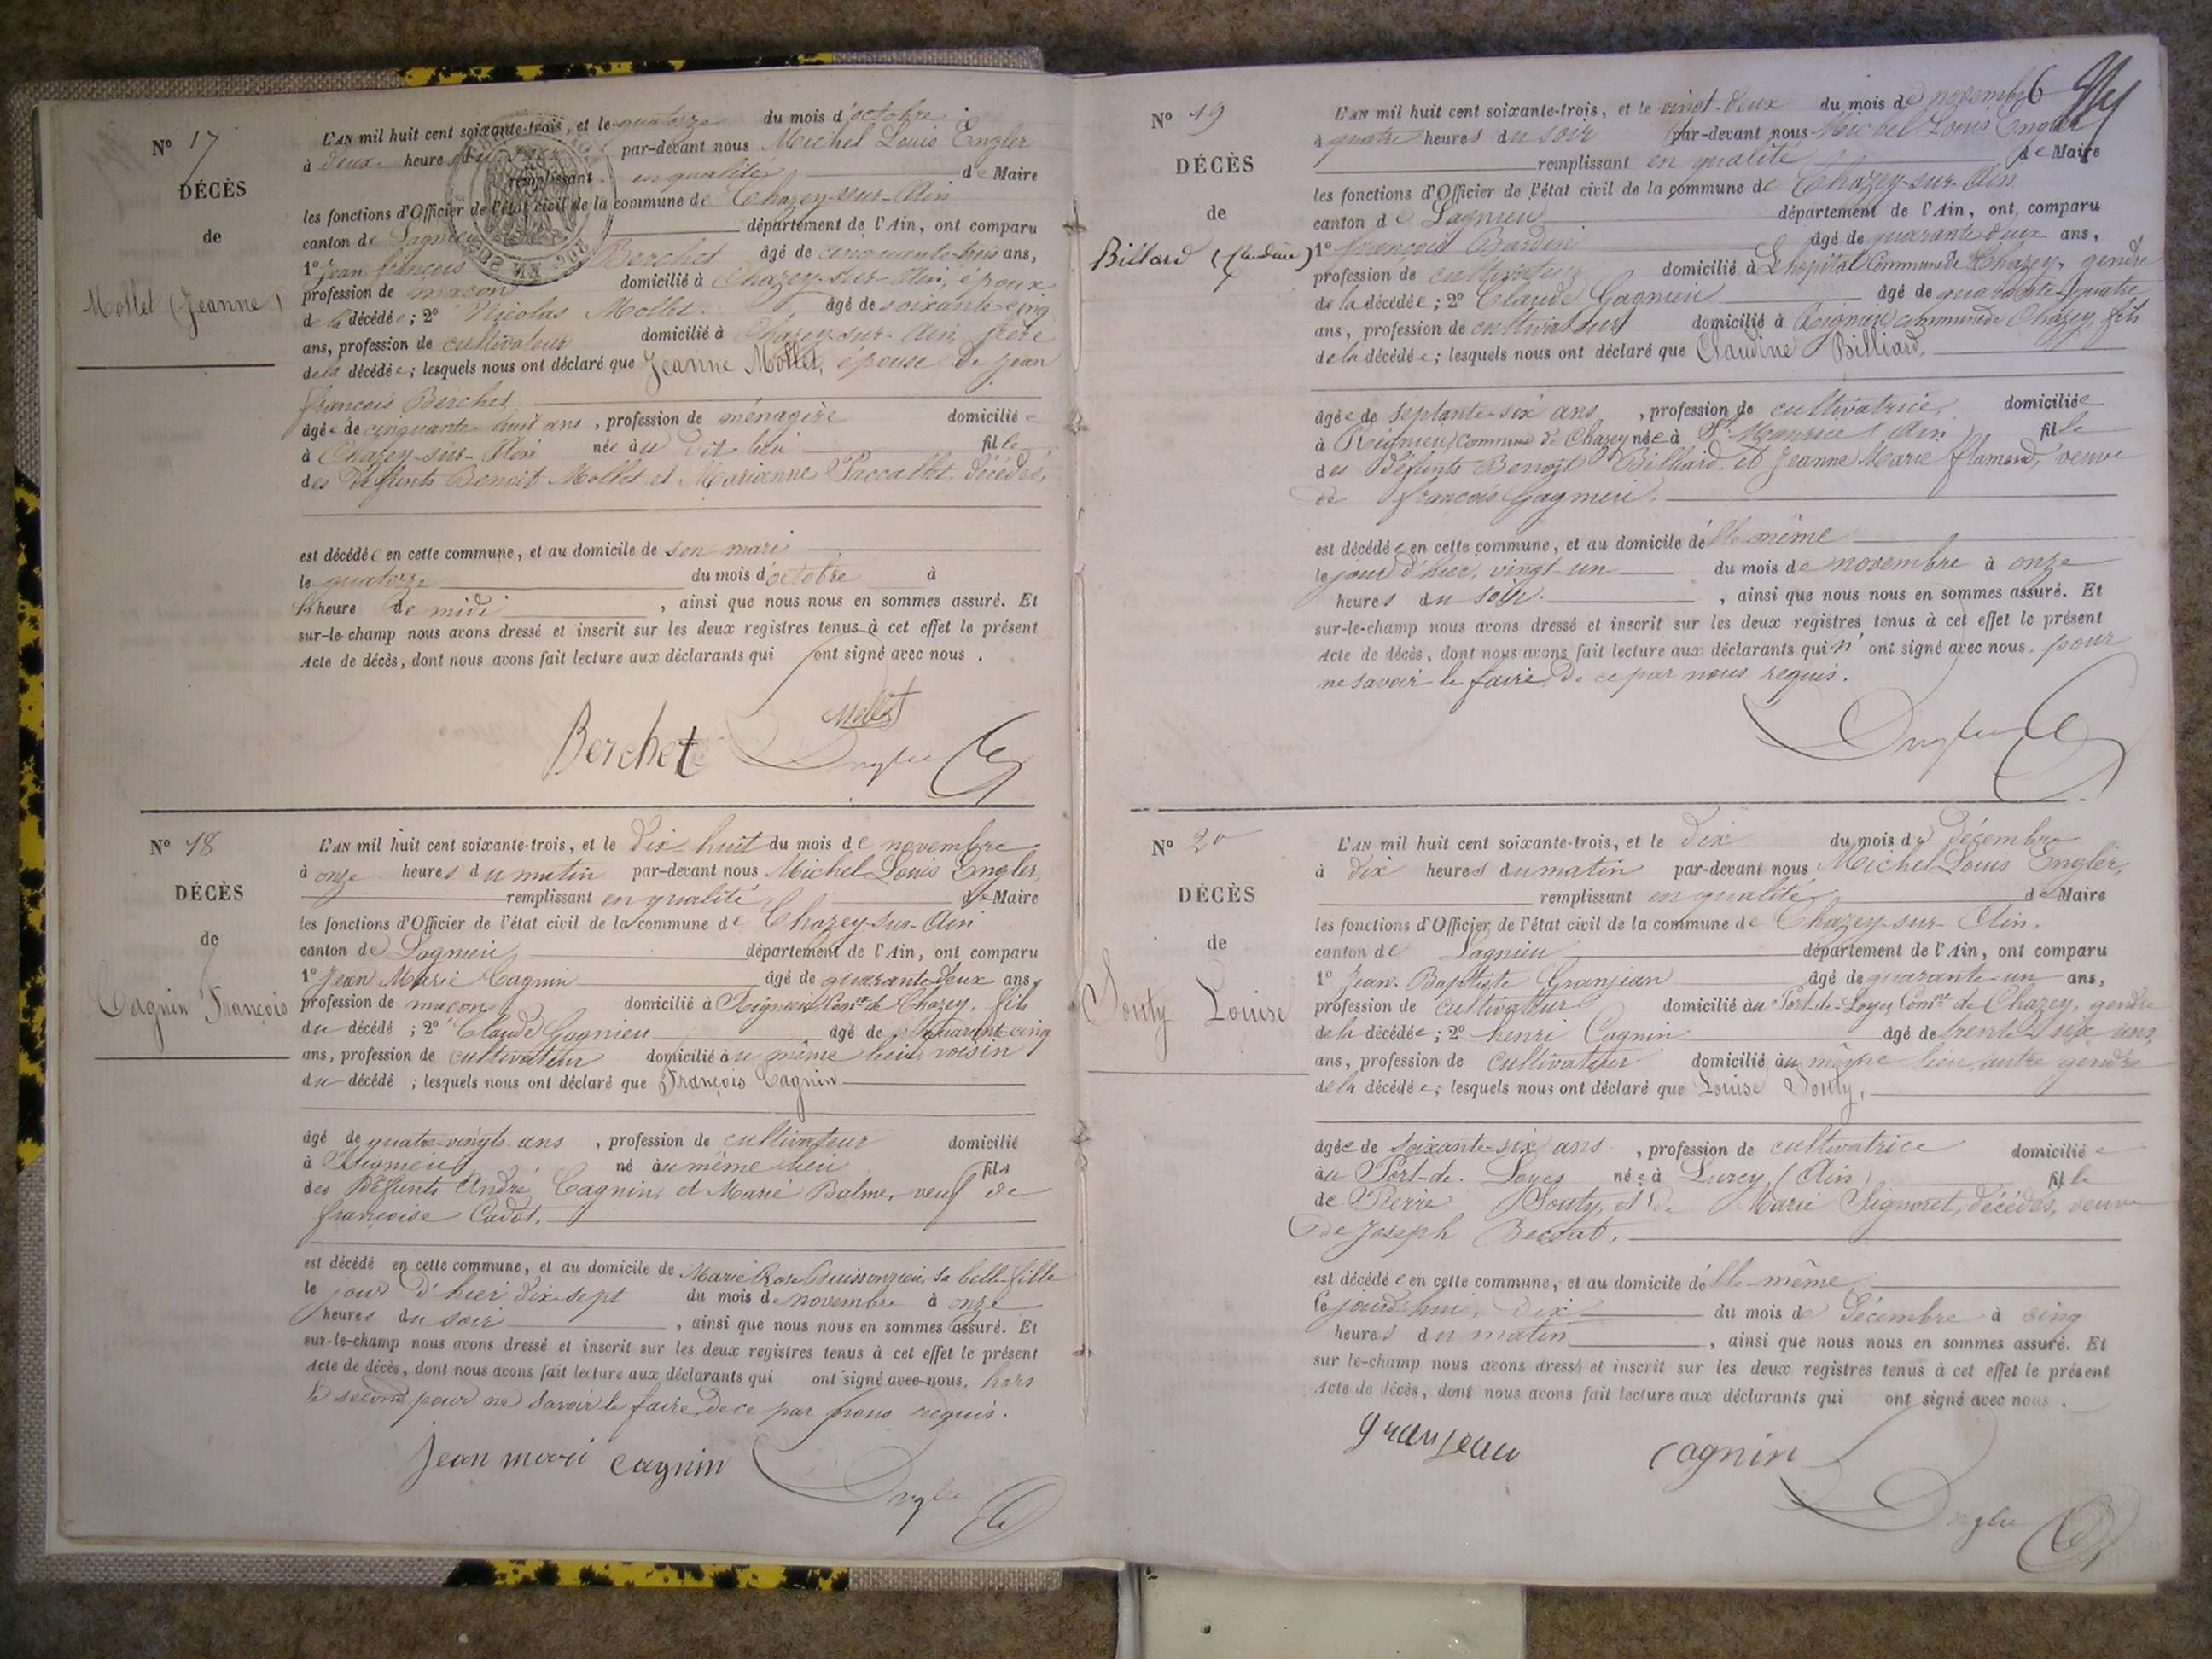 N° 17
DÉCÈS
de
Mollet (Jeanne)
L'AN mil huit cent soixante-trois, et le quatorze du mois d'octobre
à deux heures du soir par-devant nous Michel Louis Engler
remplissant en qualité de Maire
les fonctions d'Officier de l'état civil de la commune de Chazey-sur-Ain
canton de Lagnieu département de l'Ain, ont comparu
1° Jean françois Berchet âgé de cinquante-trois ans,
profession de maçon domicilié à Chazey-sur-Ain, époux
de la décédée; 2° Nicolas Mollet âgé de soixante-cinq
ans, profession de cultivateur domicilié à Chazey-sur-Ain, frère
de la décédée; lesquels nous ont déclaré que Jeanne Mollet, épouse de jean
françois Berchet,
âgée de cinquante-huit ans, profession de ménagère domiciliée
à Chazey-sur-Ain née au dit lieu fille
des défunts Benoit Mollet et Marianne Paccallet, décédés,
est décédée en cette commune, et au domicile de son mari
le quatorze du mois d'octobre à
l'heure de midi, ainsi que nous nous en sommes assuré. Et
sur-le-champ nous avons dressé et inscrit sur les deux registres tenus à cet effet le présent
Acte de décès, dont nous avons fait lecture aux déclarants qui ont signé avec nous.
Mollet
Berchet Engler
N° 18
DÉCÈS
de
Cagnin François
L'AN mil huit cent soixante-trois, et le dix huit du mois de novembre
à onze heures du matin par-devant nous Michel Louis Engler,
remplissant en qualité de Maire
les fonctions d'Officier de l'état civil de la commune de Chazey-sur-Ain
canton de Lagnieu département de l'Ain, ont comparu
1° Jean Marie Cagnin âgé de quarante-deux ans,
profession de maçon domicilié à Rignieu Comne de Chazey, fils
du décédé; 2° Claude Gagnieu âgé de quarante-cinq
ans, profession de cultivateur domicilié au même lieu, voisin
du décédé; lesquels nous ont déclaré que François Cagnin
âgé de quatre-vingts ans, profession de cultivateur domicilié
à Rignieu né au même lieu fils
des défunts André Cagnin, et Marie Balme, veuf de
françoise Cadot.
est décédé en cette commune, et au domicile de Marie Rose Buissonzieu, sa belle-fille
le jour d'hier dix-sept du mois de novembre à onze
heures du soir, ainsi que nous nous en sommes assuré. Et
sur-le-champ nous avons dressé et inscrit sur les deux registres tenus à cet effet le présent
Acte de décès, dont nous avons fait lecture aux déclarants qui ont signé avec nous, hors
le second pour ne savoir le faire, de ce par nous requis.
jean marie cagnin Engler
N° 19
DÉCÈS
de
Billard (Claudine)
L'AN mil huit cent soixante-trois, et le vingt-deux du mois de novembre
à quatre heures du soir par-devant nous Michel Louis Engler
remplissant en qualité de Maire
les fonctions d'Officier de l'état civil de la commune de Chazey-sur-Ain
canton de Lagnieu département de l'Ain, ont comparu
1° françois Bardin âgé de quarante deux ans,
profession de cultivateur domicilié à L'hopital Commune de Chazey, gendre
de la décédée; 2° Claude Gagnieu âgé de quarante-quatre
ans, profession de cultivateur domicilié à Rignieu commune de Chazey, fils
de la décédée; lesquels nous ont déclaré que Claudine Billiard,
âgée de septante-six ans, profession de cultivatrice, domiciliée
à Rignieu, Commune de Chazey née à St Maurice (Ain) fille
des défunts Benoit Billiard et Jeanne Marie flamand, veuve
de françois Gagnieu.
est décédée en cette commune, et au domicile d'elle-même
le jour d'hier, vingt-un du mois de novembre à onze
heures du soir, ainsi que nous nous en sommes assuré. Et
sur-le-champ nous avons dressé et inscrit sur les deux registres tenus à cet effet le présent
Acte de décès, dont nous avons fait lecture aux déclarants qui n'ont signé avec nous, pour
ne savoir le faire, de ce par nous requis.
Engler
N° 20
DÉCÈS
de
Jouty Louise
L'AN mil huit cent soixante-trois, et le dix du mois de décembre
à dix heures du matin par-devant nous Michel Louis Engler,
remplissant en qualité de Maire
les fonctions d'Officier de l'état civil de la commune de Chazey-sur-Ain,
canton de Lagnieu département de l'Ain, ont comparu
1° Jean-Baptiste Granjean âgé de quarante-un ans,
profession de cultivateur domicilié au Port-de-Loyes, Comne de Chazey, gendre
de la décédée; 2° henri Cagnin âgé de trente-six ans,
ans, profession de cultivateur domicilié au même lieu, autre gendre
de la décédée; lesquels nous ont déclaré que Louise Jouty,
âgée de soixante-six ans, profession de cultivatrice domiciliée
au Port-de-Loyes née à Lurcy (Ain) fille
de Pierre Jouty, et de Marie Signoret, décédés, veuve
de Joseph Beccat.
est décédée en cette commune, et au domicile d'elle-même
le jourd'hui, dix du mois de décembre à cinq
heures du matin, ainsi que nous nous en sommes assuré. Et
sur le-champ nous avons dressé et inscrit sur les deux registres tenus à cet effet le présent
Acte de décès, dont nous avons fait lecture aux déclarants qui ont signé avec nous.
granjean cagnin
Engler